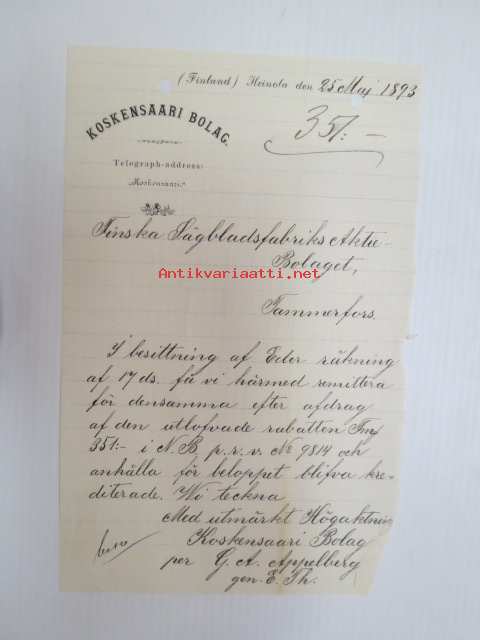 (Finland) Heinola den 25 Maj 1893
KOSKENSAARI BOLAG.
35/: —
Telegraph-address:
„Koskensaari."
Finska Sågbladsfabriks Aktie-
Bolaget,
Antikvariaatti.net
Tammerfors.
I besittning af Eder räkning
af 17 ds. få vi härmed remittera
för densamma efter afdrag
af den utlofvade rabatten Fmk
351:- i N.B. p.r.v. No 9814 och
anhålla för beloppet blifva kre-
diterade. Wi teckna
Med utmärkt Högaktning
Koskensaari Bolag
per G. A. Appelberg
gen. E. Th.